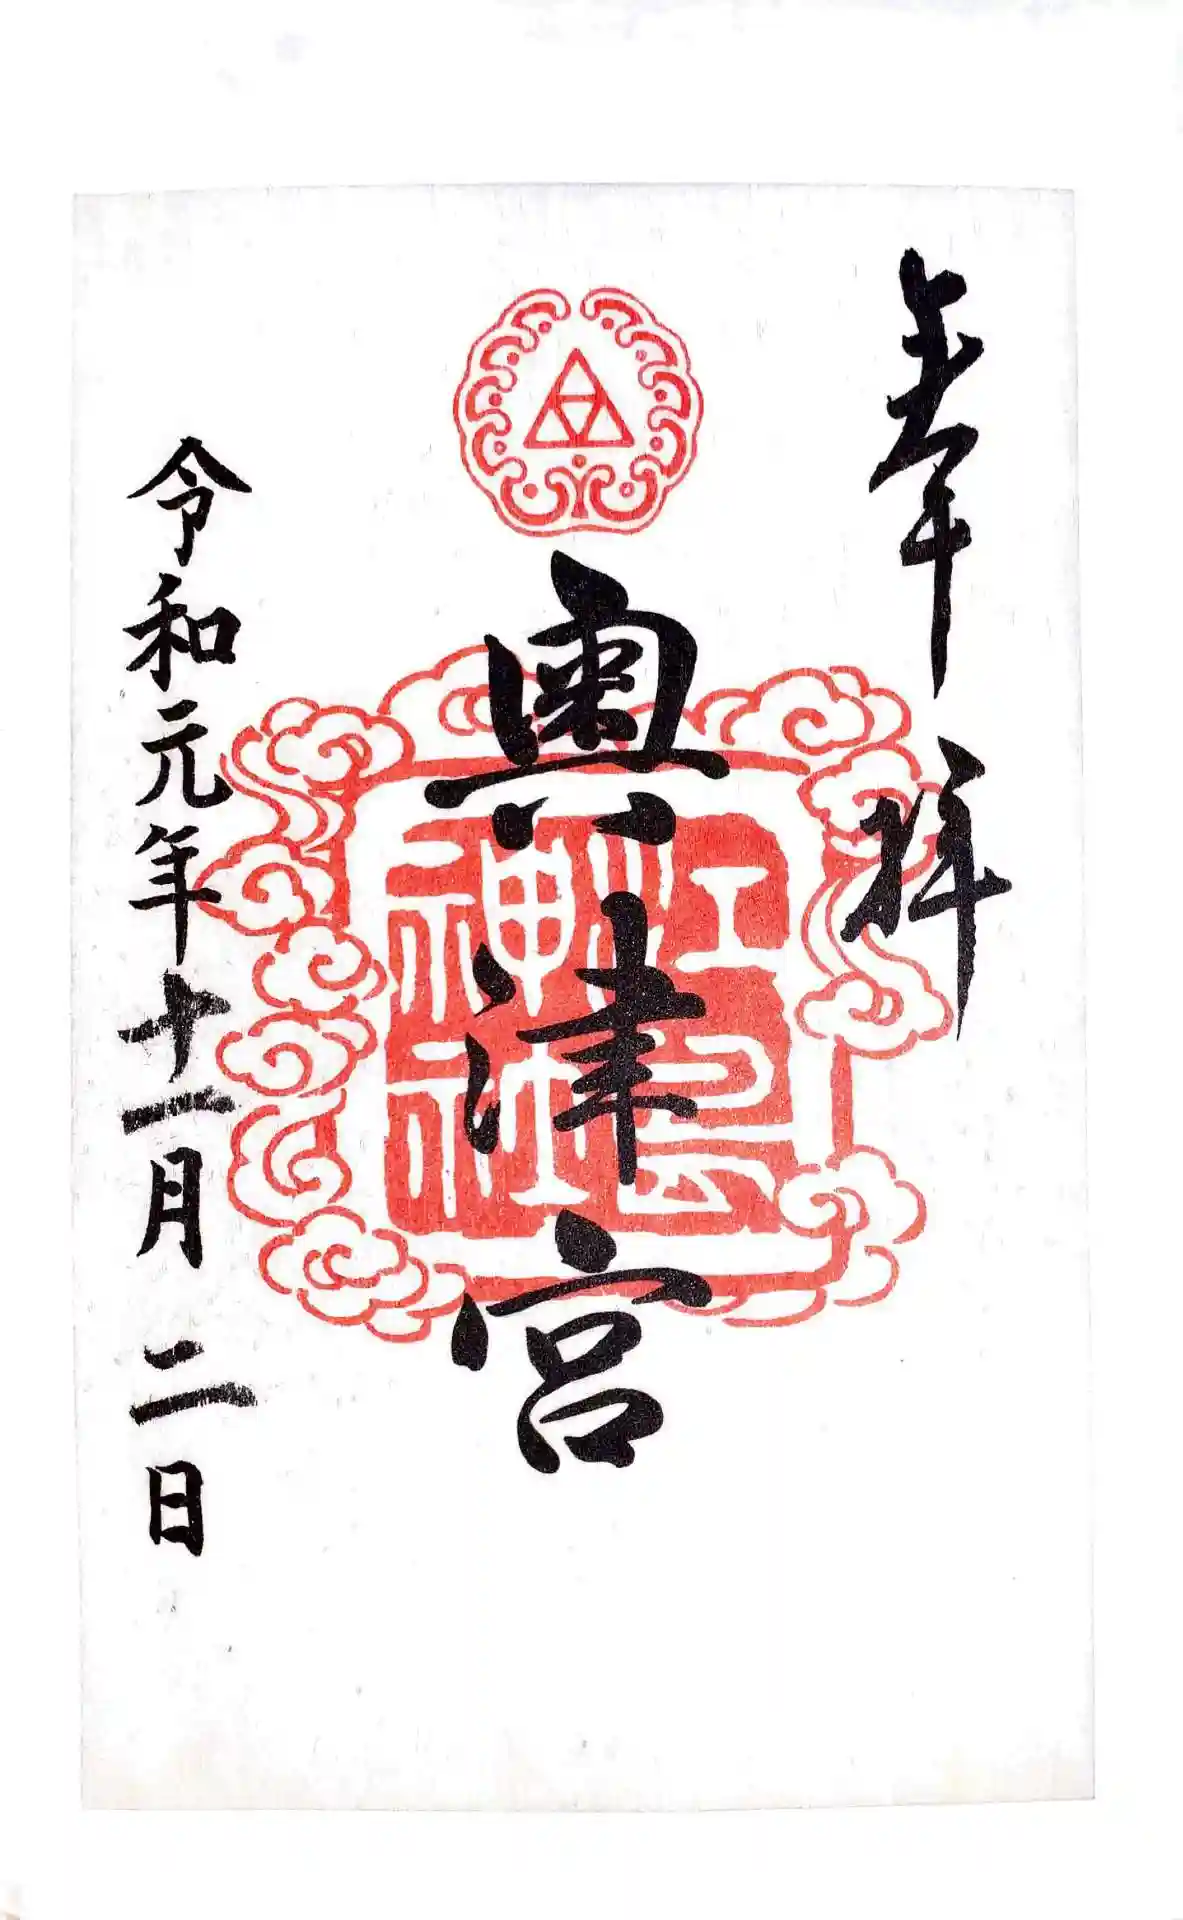 奉拝
奥津宮
江島神社
令和元年十一月二日